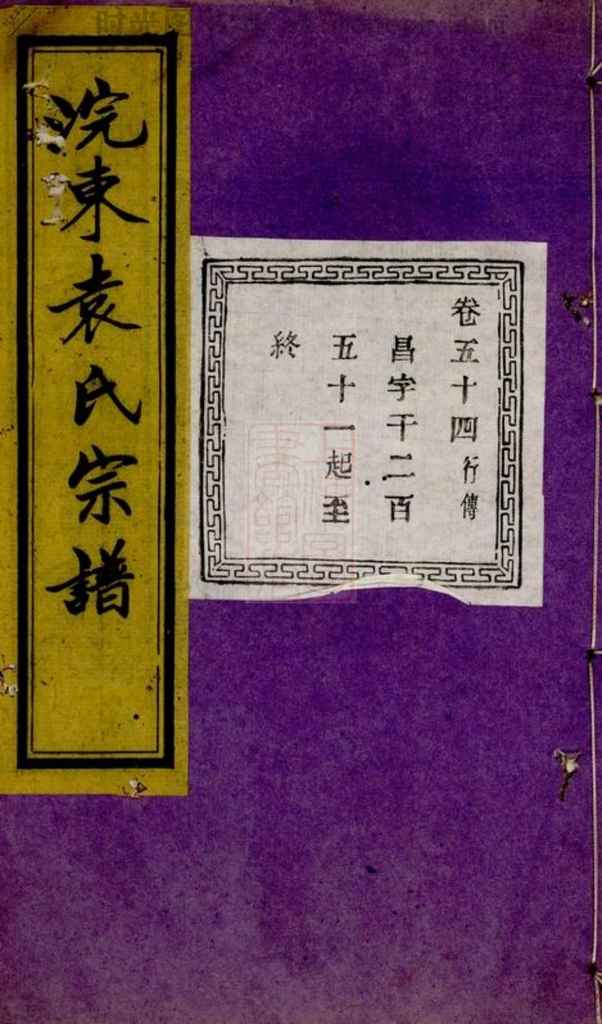 浣東袁氏宗譜
卷五十四行傳
昌字千二百
五十一起至
終